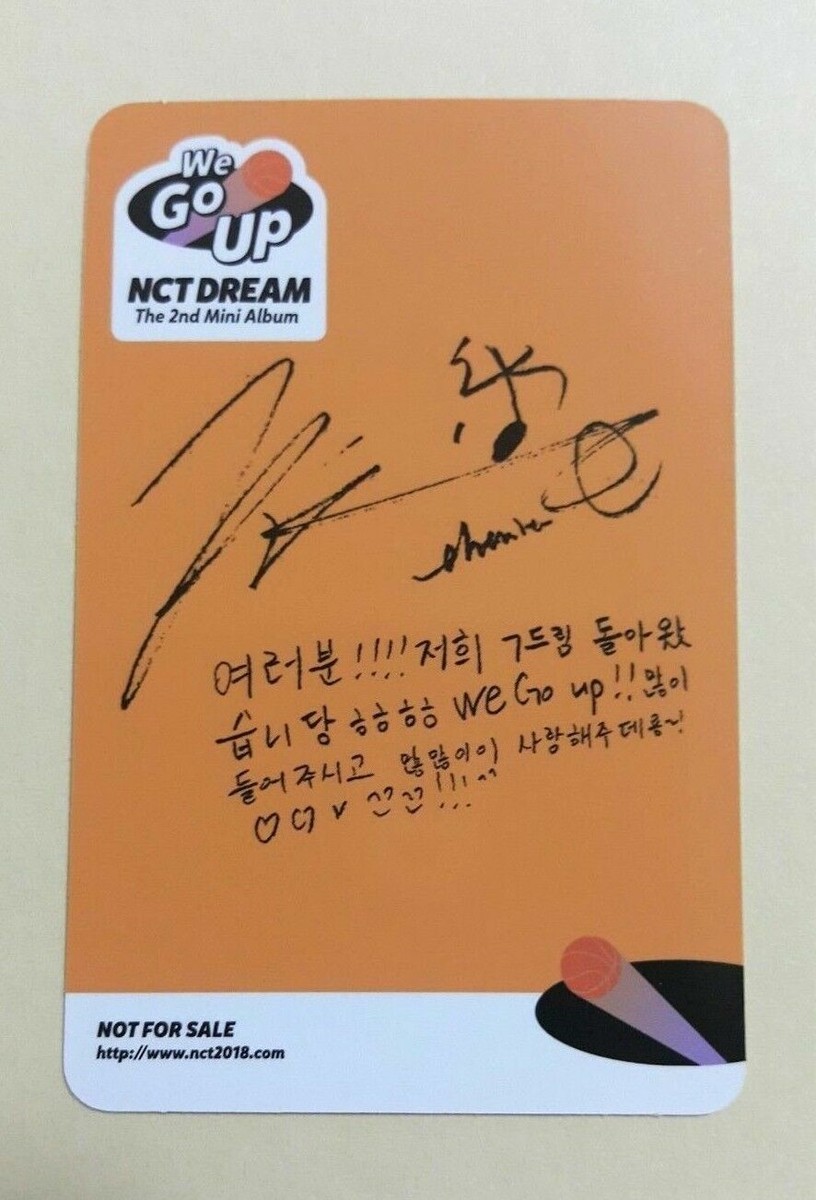 We
Go
Up
NCT DREAM
The 2nd Mini Album
여러분!!!! 저희 7드림 돌아왔
습니당 ㅎㅎㅎㅎ We Go up!! 많이
들어주시고 많많이이 사랑해주데용~!
♡♡v
!!!
NOT FOR SALE
http://www.nct2018.com